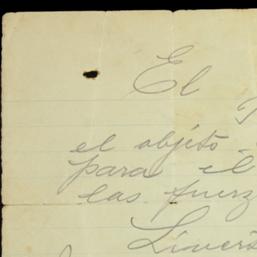 El
el objeto
para el
las fuerz